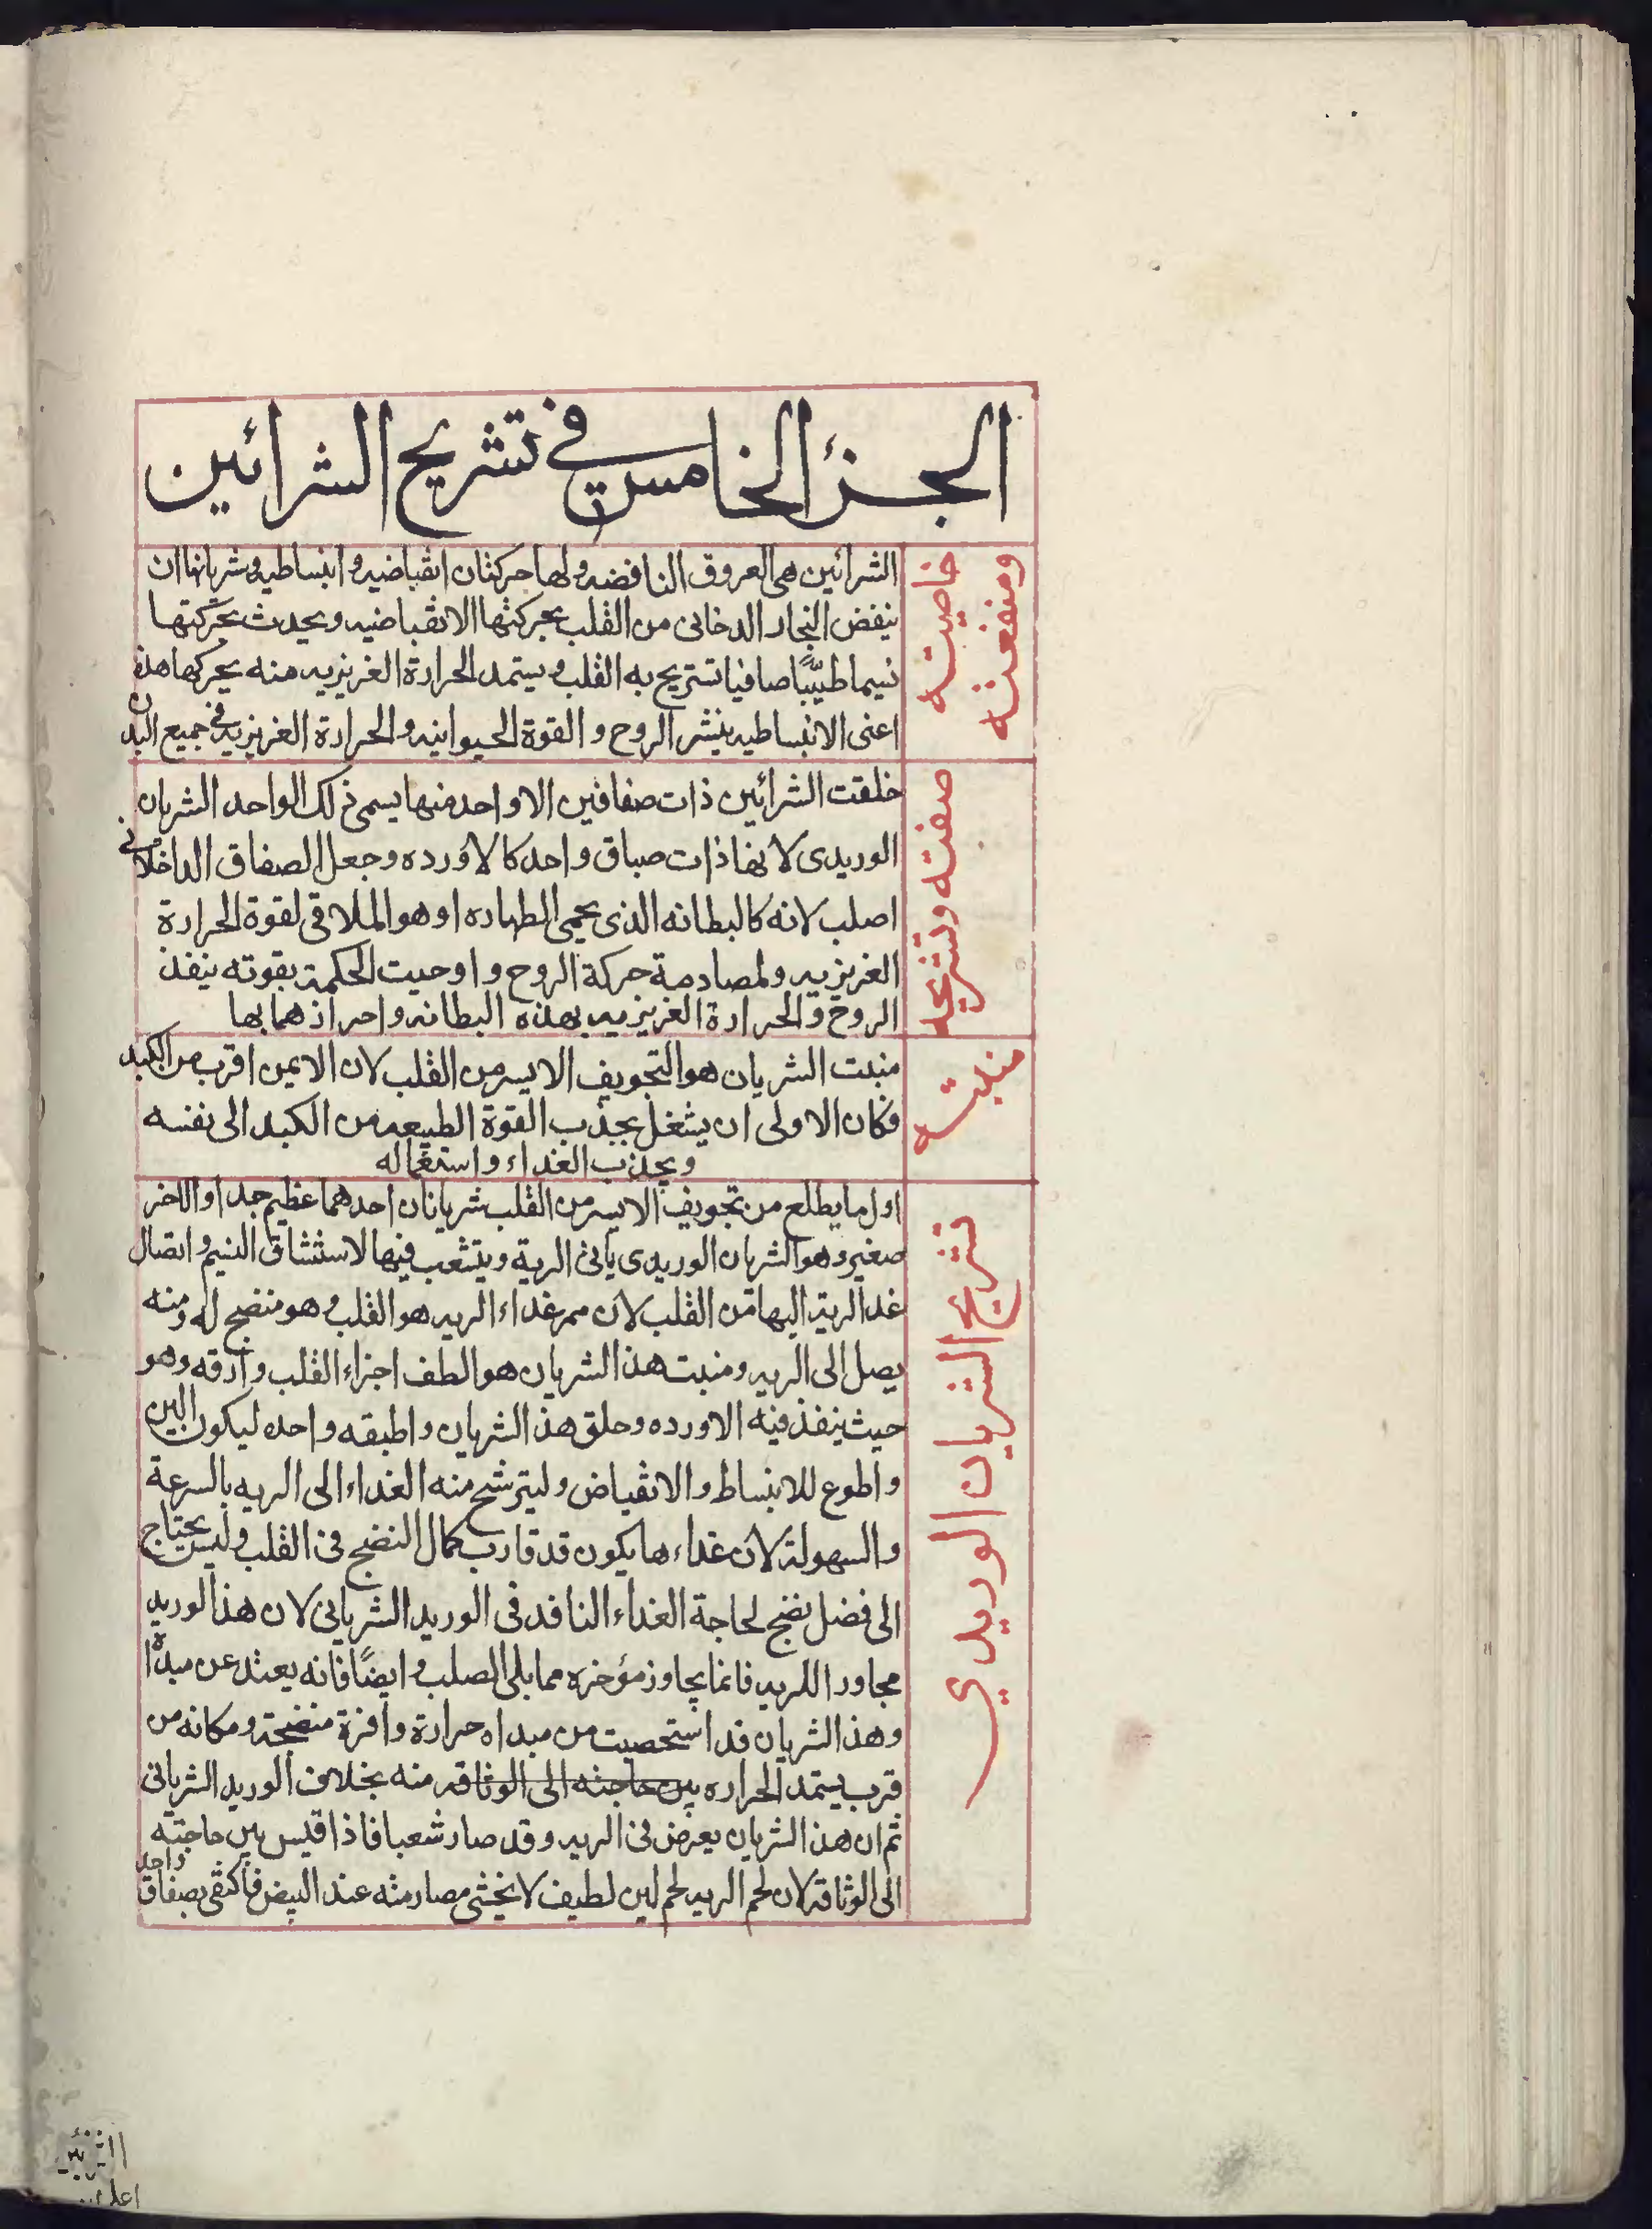 الجزئ الخامس في تشريح الشرائين
خاصيته
ومنفعته
الشرائين هى العروق النافضه ولها حركتان انقباضيه وانبساطيه وشريانها ان
ينفض البخار الدخانى من القلب بحركتها الانقباضيه ويحدث بحركتها
نسيما طيّبًا صافيا تستريح به القلب ويستمد الحرارة الغريزيه منه بحركها هذه
اعنى الانبساطيه ينشر الروح و القوة الحيوانيه والحرارة الغريزيه في جميع البدن
صفته وتشريحه
خلقت الشرائين ذات صفاقين الا واحد منها يسمى ذلك الواحد الشريان
الوريدى لانها ذات صباق واحد كالاورده وجعل الصفاق الداخلانى
اصلب لانه كالبطانه الذى يحمى الطهاره او هو الملاقى لقوة الحرارة
الغريزيه ولمصادمة حركة الروح و اوحيت الحكمة بقوته ينفذ
الروح والحرارة الغريزيه بهذه البطانه واحراذهما بها
منبته
منبت الشريان هو التجويف الايسر من القلب لان الايمن اقرب من الكبد
فكان الاولى ان يشغل بجذب القوة الطبيعه من الكبد الى نفسه
ويجذب الغذاء و استعماله
تشريح الشريان الوريدي
اول ما يطلع من تجويف الايسر من القلب شريانان احدهما عظيم جدا والآخر
صغير وهو الشريان الوريدى يأتى الرية ويتشعب فيها لاستنشاق النسيم واتصال
غدا الرية اليها من القلب لان ممر غداء الريه هو القلب وهو منضج له ومنه
يصل الى الريه ومنبت هذ الشريان هو الطف اجزاء القلب وارقه وهو
حيث ينفذ فيه الاورده وحلق هذ الشريان واطبقه واحده ليكون الين
واطوع للانبساط والانقباض وليترشح منه الغداء الى الريه بالسرعة
والسهولة لان غداءها يكون قد قارب كمال النضج فى القلب وليس يحتاج
الى فضل نضج لحاجة الغداء النافد فى الوريد الشريانى لان هذ الوريد
مجاور اللريه فانما يجاوز مؤخره مما يلى الصلب وايضًا فانه يعتد عن مبدأة
وهذ الشريان قد استحصبت من مبداه حرارة وافزة منضجة ومكانه من
قرب يستمد الحراره بين حاجته الى الوثاقه منه بخلاف الوريد الشريانى
ثم ان هذ الشريان يعرض فى الريه وقد صار شعبا فاذا قيس بين حاجته
الى الوثاقة لان لحم الريه لحم لين لطيف لا يخشى مصادمته عند النبض فاكتفى بصفاق واحد